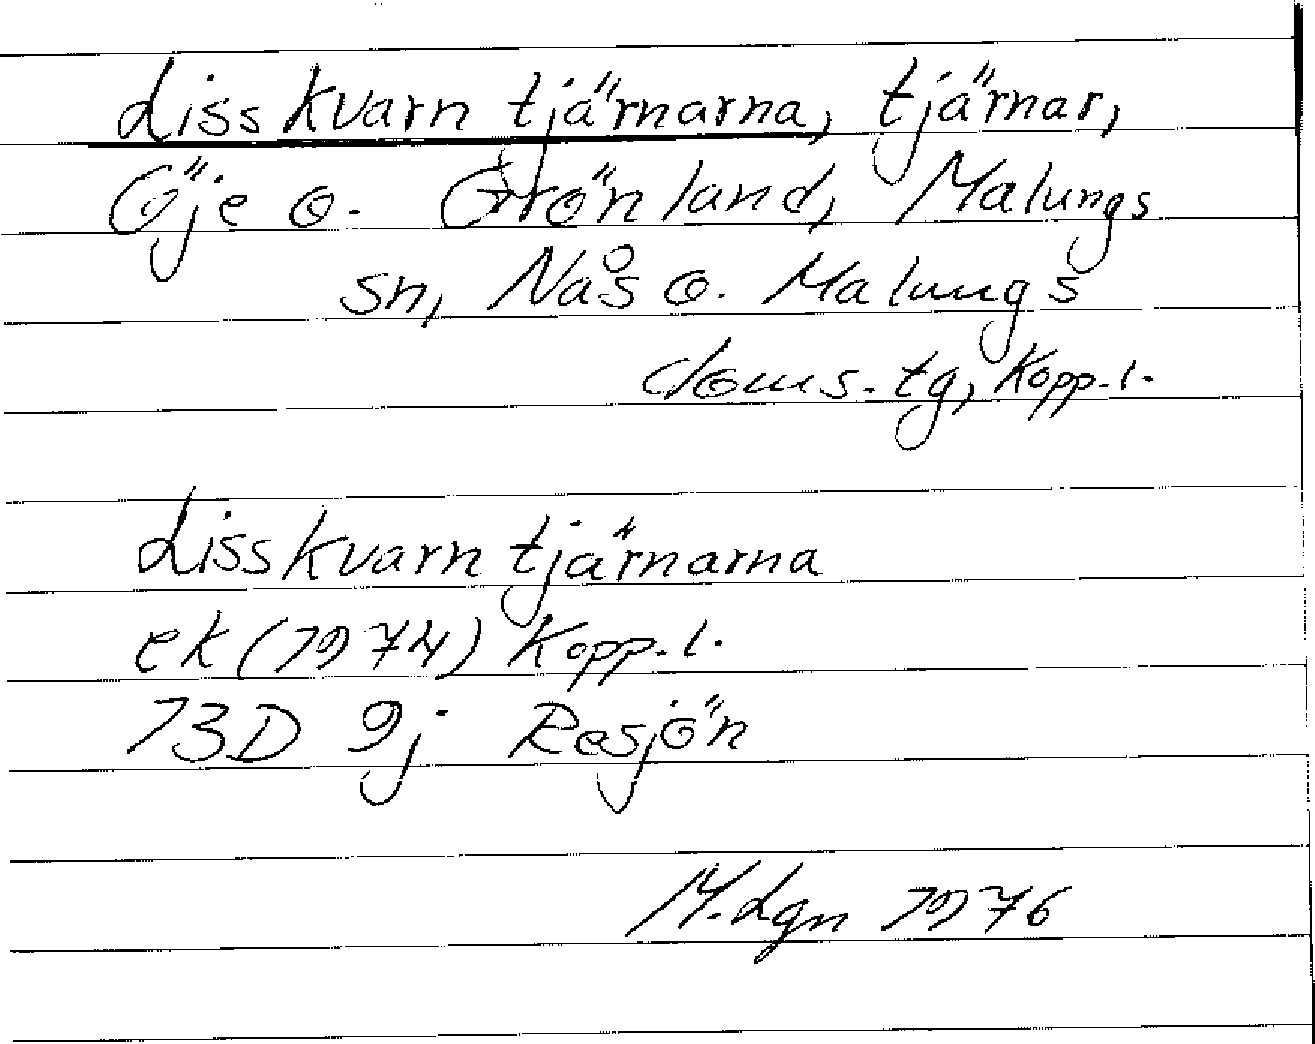 Lisskvarntjärnarna, tjärnar,
Öje o. Grönland, Malungs
sn, Nås o. Malungs
doms. tg, Kopp. l.
Lisskvarntjärnarna
ek (1974) Kopp. l.
13D 9j Resjön
M. Lgn 1976